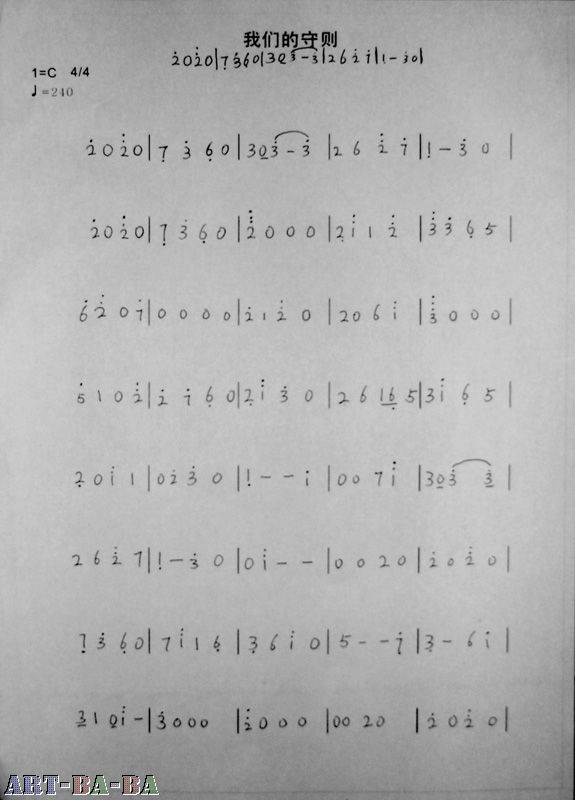 我们的守则
2020|7360|303-3|262i|1-30|
1=C 4/4
♩=240
2020|7360|303-3|2627|1-30|
2020|7360|2000|2i12|3365|
6207|0000|2120|206i|3000|
5102|2760|2i30|26165|3i65|
20i1|0230|1--i|007i|303 3|
2627|1-30|0i--|0020|2020|
7360|7i16|36i0|5--7|3-6i|
310i-|3000|2000|0020|2020|
ART-BA-BA